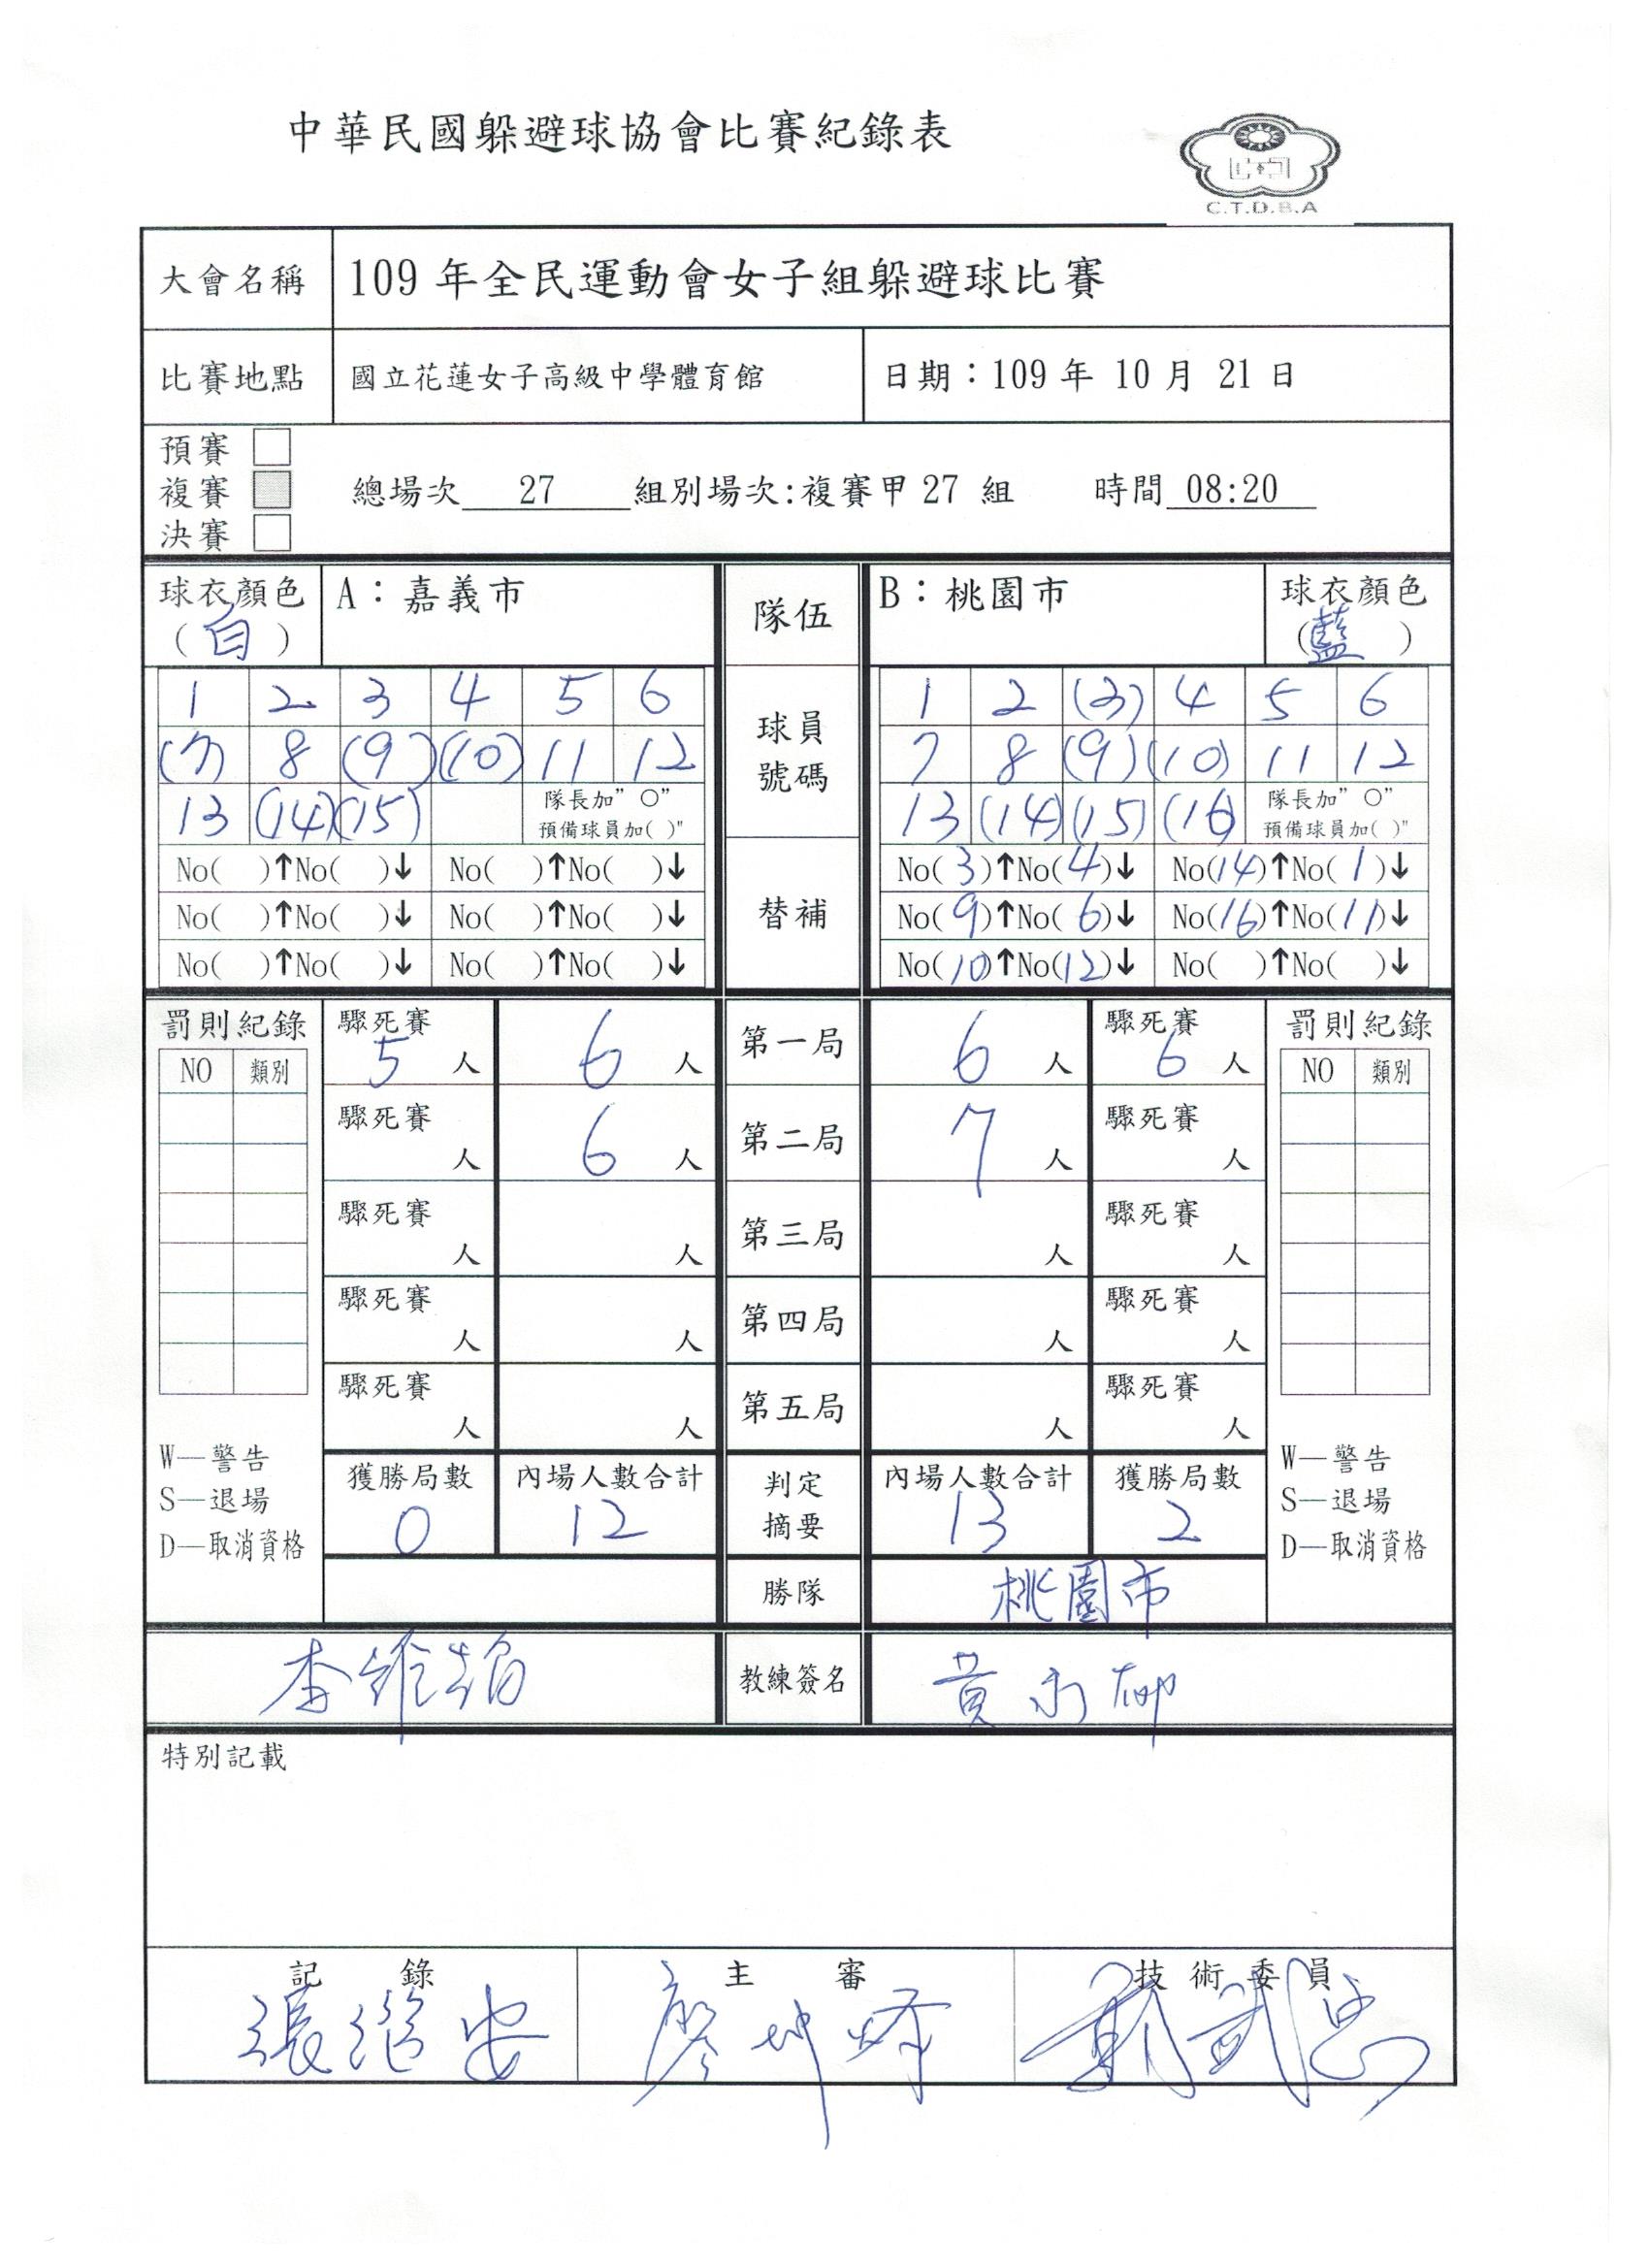 中華民國躲避球協會比賽紀錄表
C.T.D.B.A
大會名稱 109 年全民運動會女子組躲避球比賽
比賽地點 國立花蓮女子高級中學體育館 日期：109 年 10 月 21 日
預賽
複賽 總場次 27 組別場次:複賽甲 27 組 時間 08:20
決賽
球衣顏色 A：嘉義市 隊伍 B：桃園市 球衣顏色
(白) (藍)
1 2 3 4 5 6 球員 1 2 (3) 4 5 6
(7) 8 (9) (10) 11 12 號碼 7 8 (9) (10) 11 12
13 (14) (15) 隊長加"O" 13 (14) (15) (16) 隊長加"O"
預備球員加( )" 預備球員加( )"
No( )↑No( )↓ No( )↑No( )↓ No(3)↑No(4)↓ No(14)↑No(1)↓
No( )↑No( )↓ No( )↑No( )↓ 替補 No(9)↑No(6)↓ No(16)↑No(11)↓
No( )↑No( )↓ No( )↑No( )↓ No(10)↑No(12)↓ No( )↑No( )↓
罰則紀錄 驟死賽 5 人 6 人 第一局 6 人 驟死賽 6 人 罰則紀錄
NO 類別 NO 類別
驟死賽 人 6 人 第二局 7 人 驟死賽 人
驟死賽 人 人 第三局 人 驟死賽 人
驟死賽 人 人 第四局 人 驟死賽 人
驟死賽 人 人 第五局 人 驟死賽 人
W—警告 W—警告
S—退場 獲勝局數 內場人數合計 判定摘要 內場人數合計 獲勝局數 S—退場
D—取消資格 0 12 13 2 D—取消資格
勝隊 桃園市
教練簽名 黃
特別記載
記錄 主審 技術委員
張 安 廖